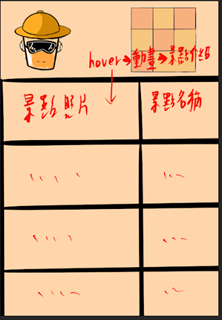 hover→動畫→景點介紹
景點照片
景點名稱